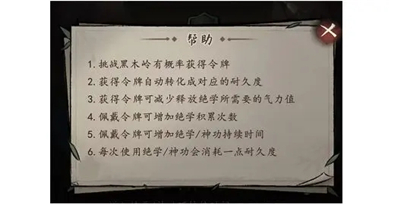 帮助
1.挑战黑木岭有概率获得令牌
2.获得令牌自动转化成对应的耐久度
3.获得令牌可减少释放绝学所需要的气力值
4.佩戴令牌可增加绝学积累次数
5.佩戴令牌可增加绝学/神功持续时间
6.每次使用绝学/神功会消耗一点耐久度